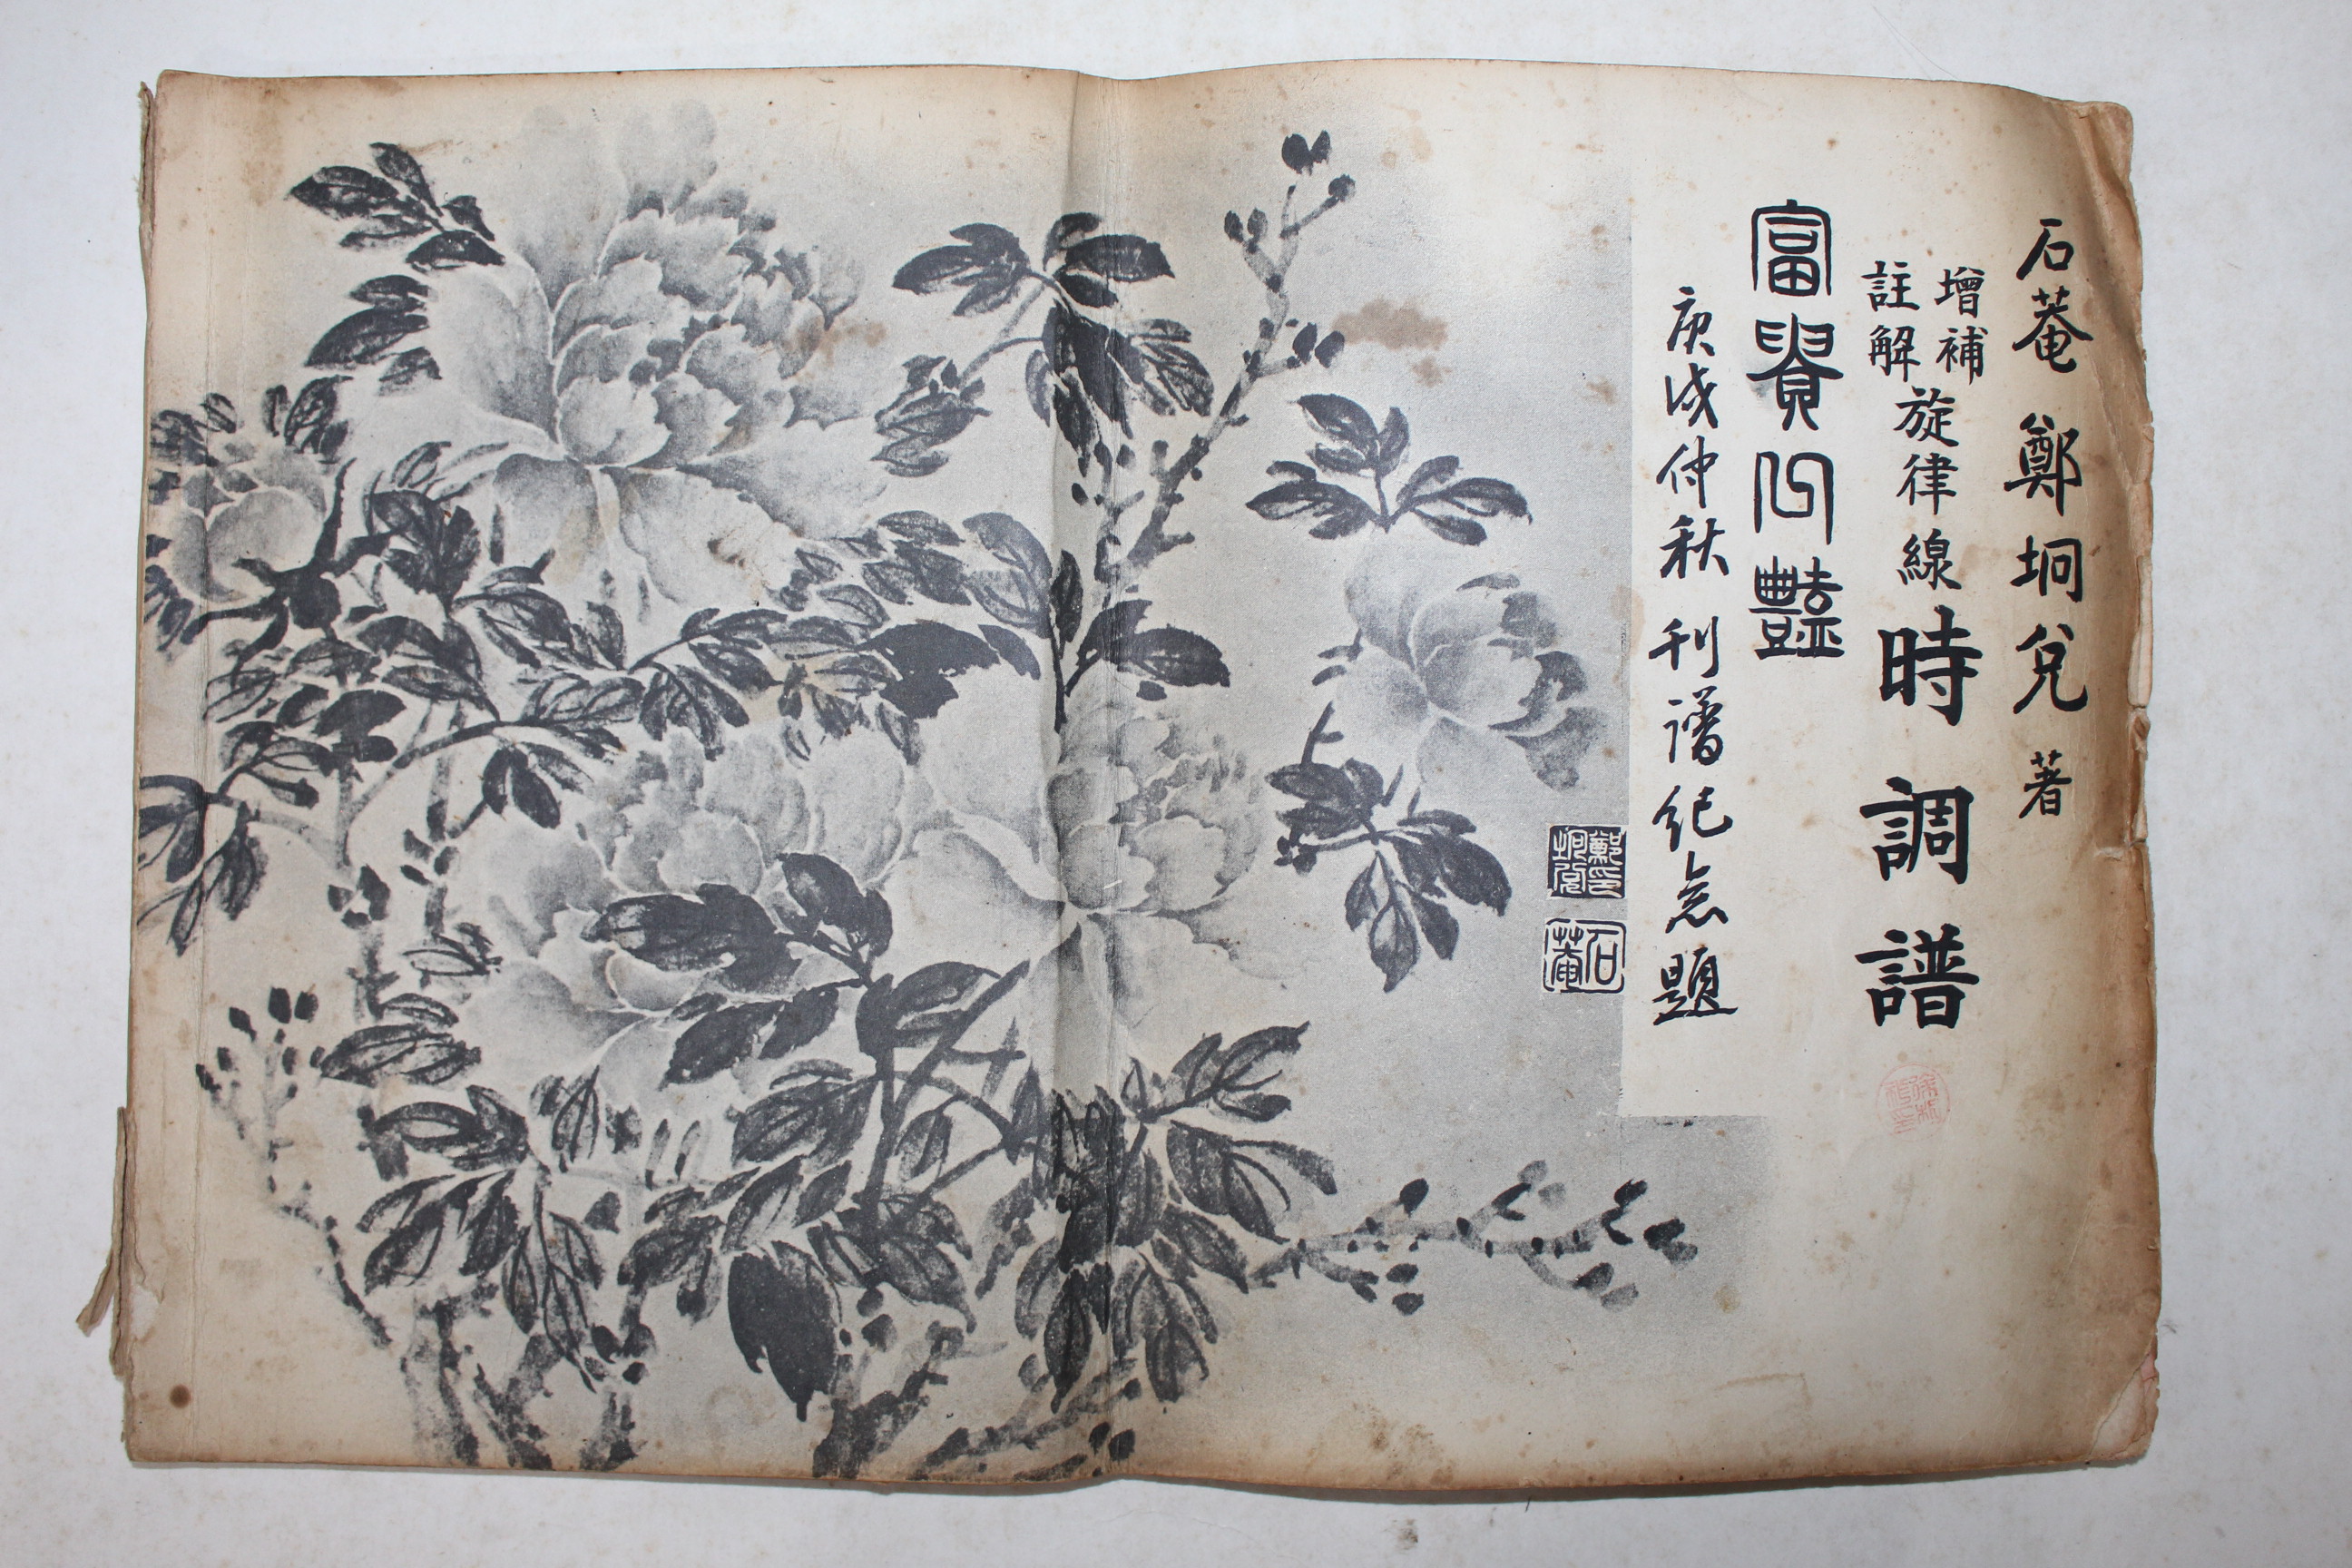 石菴 鄭坰兌 著
增補
註解
旋律線 時調譜
富貴 豔
庚戌仲秋 刊譜紀念題
鄭坰兌印
石菴